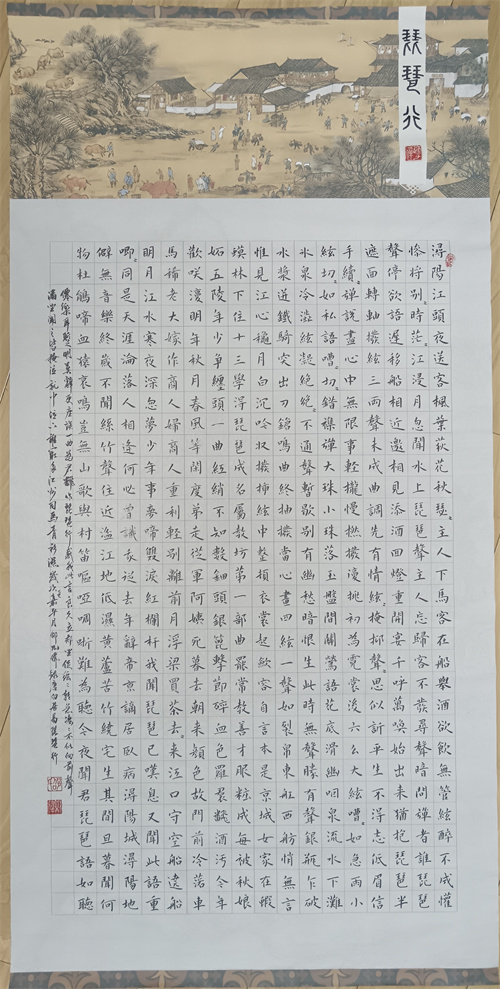 琵琶行
潯陽江頭夜送客楓葉荻花秋瑟〻主人下馬客在船舉酒欲飲無管絃醉不成懽
慘將別〻時茫〻江浸月忽聞水上琵琶聲主人忘歸客不發尋聲暗問彈者誰琵琶
聲停欲語遲移船相近邀相見添酒回燈重開宴千呼萬喚始出來猶抱琵琶半
遮面轉軸撥絃三兩聲未成曲調先有情絃〻掩抑聲〻思似訴平生不得志低眉信
手續〻彈說盡心中無限事輕攏慢撚撥復挑初為霓裳後六幺大絃嘈〻如急雨小
絃切〻如私語嘈〻切〻錯雜彈大珠小珠落玉盤間關鶯語花底滑幽咽泉流水下灘
水泉冷澀絃凝絕〻不通聲暫歇別有幽愁暗恨生此時無聲勝有聲銀瓶乍破
水漿迸鐵騎突出刀鎗鳴曲終抽撥當心畫四絃一聲如裂帛東船西舫悄無言
惟見江心秋月白沉吟收撥插絃中整頓衣裳起斂容自言本是京城女家在蝦
蟆林下住十三學得琵琶成名屬教坊第一部曲罷常教善才服粧成每被秋娘
妬五陵年少爭纏頭一曲紅綃不知數鈿頭銀篦擊節碎血色羅裙翻酒汚今年
歡咲復明年秋月春風等閑度弟走從軍阿姨死暮去朝來顏色故門前冷落車
馬稀老大嫁作商人婦商人重利輕別離前月浮梁買茶去〻來江口守空船遶船
明月江水寒夜深忽夢少年事夢啼雙淚紅闌干我聞琵琶已嘆息又聞此語重
唧〻同是天涯淪落人相逢何必曾識我從去年辭帝京謫居臥病潯陽城潯陽地
僻無音樂終歲不聞絲竹聲住近湓江地低濕黃蘆苦竹繞宅生其間旦暮聞何
物杜鵑啼血猿哀鳴豈無山歌與村笛嘔啞啁哳難為聽今夜聞君琵琶語如聽
僊樂耳暫明莫辭更座彈一曲為君翻作琵琶行感我此言良久立却坐促絃〻轉急凄〻不似向前聲
滿坐聞之皆掩泣就中泣下誰最多江州司馬青衫濕歲次年月錄唐白居易琵琶行